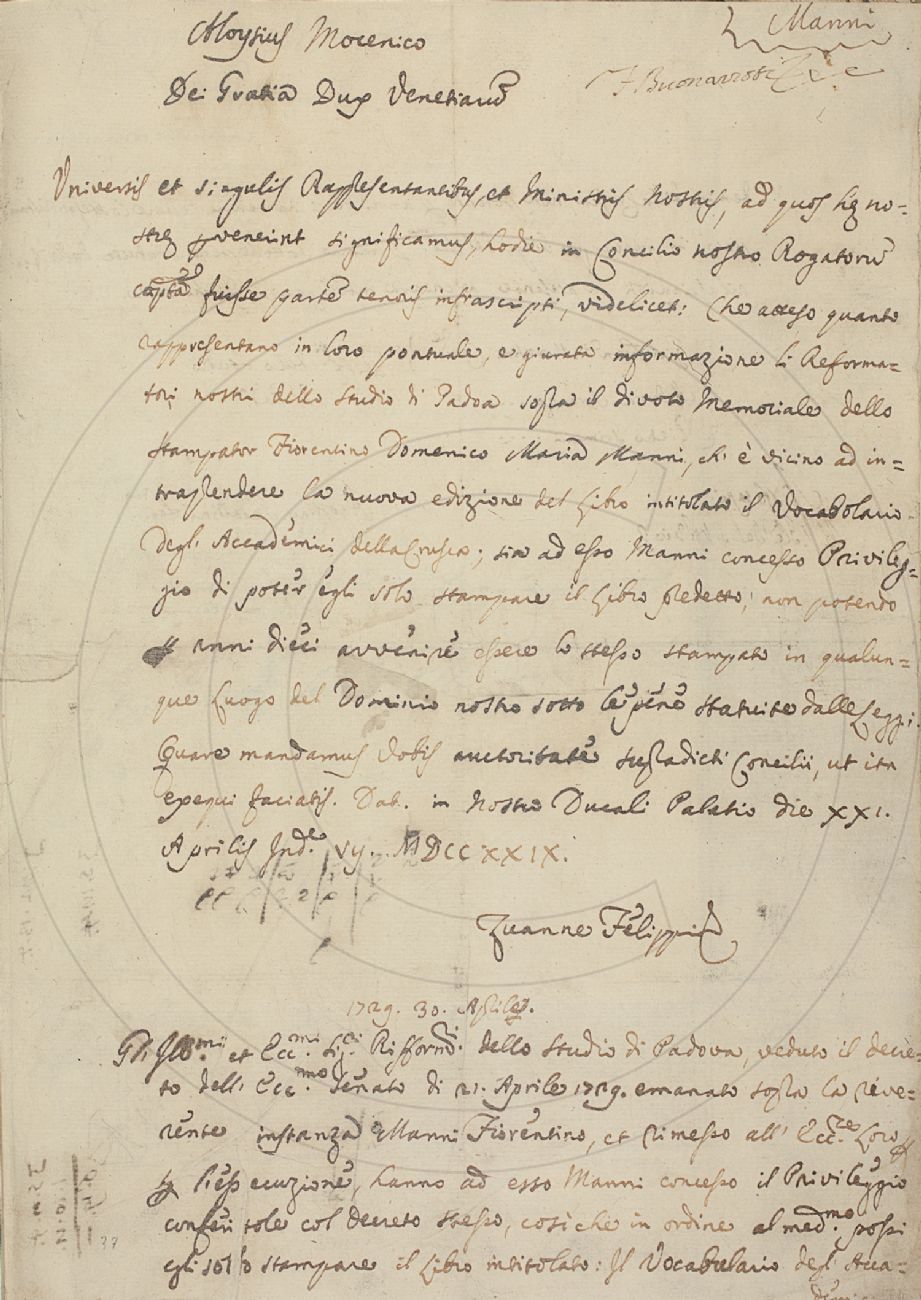 Aloysius Mocenico
Manni
F Buonarroti
Dei Gratia Dux Venetiarū
Universis et singulis Rappresentantibus, et Ministris Nostris, ad quos hę no=
strę pvenerint significamus, hodie in Concilio nostro Rogatorū
captā fuisse partē tenoris infrascripti, videlicet: Che atteso quanto
rappresentano in loro pontuale, e giurata informazione li Reforma=
tori nostri dello Studio di Padoa sopra il divoto Memoriale dello
Stampator Fiorentino Domenico Maria Manni, ch' è vicino ad in=
traprendere la nuova edizione del Libro intitolato il Vocabolario
degl' Accademici della Crusca; sia ad esso Manni concesso Privileg=
gio di poter egli solo stampare il Libro predetto; non potendo
anni dieci avvenire essere lo stesso stampato in qualun=
que Luogo del Dominio nostro sotto le pene statuite dalle Leggi.
Quare mandamus Vobis auctoritate supradicti Concilii, ut ita
exequi faciatis. Dat. in Nostro Ducali Palatio die XXI.
Aprilis Ind.e Vij. MDCCXXIX.
Zuanne Felippi
1729. 30. Aprile.
Gli Ill.mi et Ecc.mi Sig.ri Rifform.ri dello Studio di Padova, veduto il decre=
to dell' Ecc.mo Senato di 21. Aprile 1729. emanato sopra la rive=
rente instanza Manni Fiorentino, et rimesso all' Ecc.ze Loro
p l'essecuzione, hanno ad esso Manni concesso il Privileggio
conferitole col decreto stesso, cosichè in ordine al med.mo possi
egli solo stampare il Libro intitolato: Il Vocabulario degl' Acca=